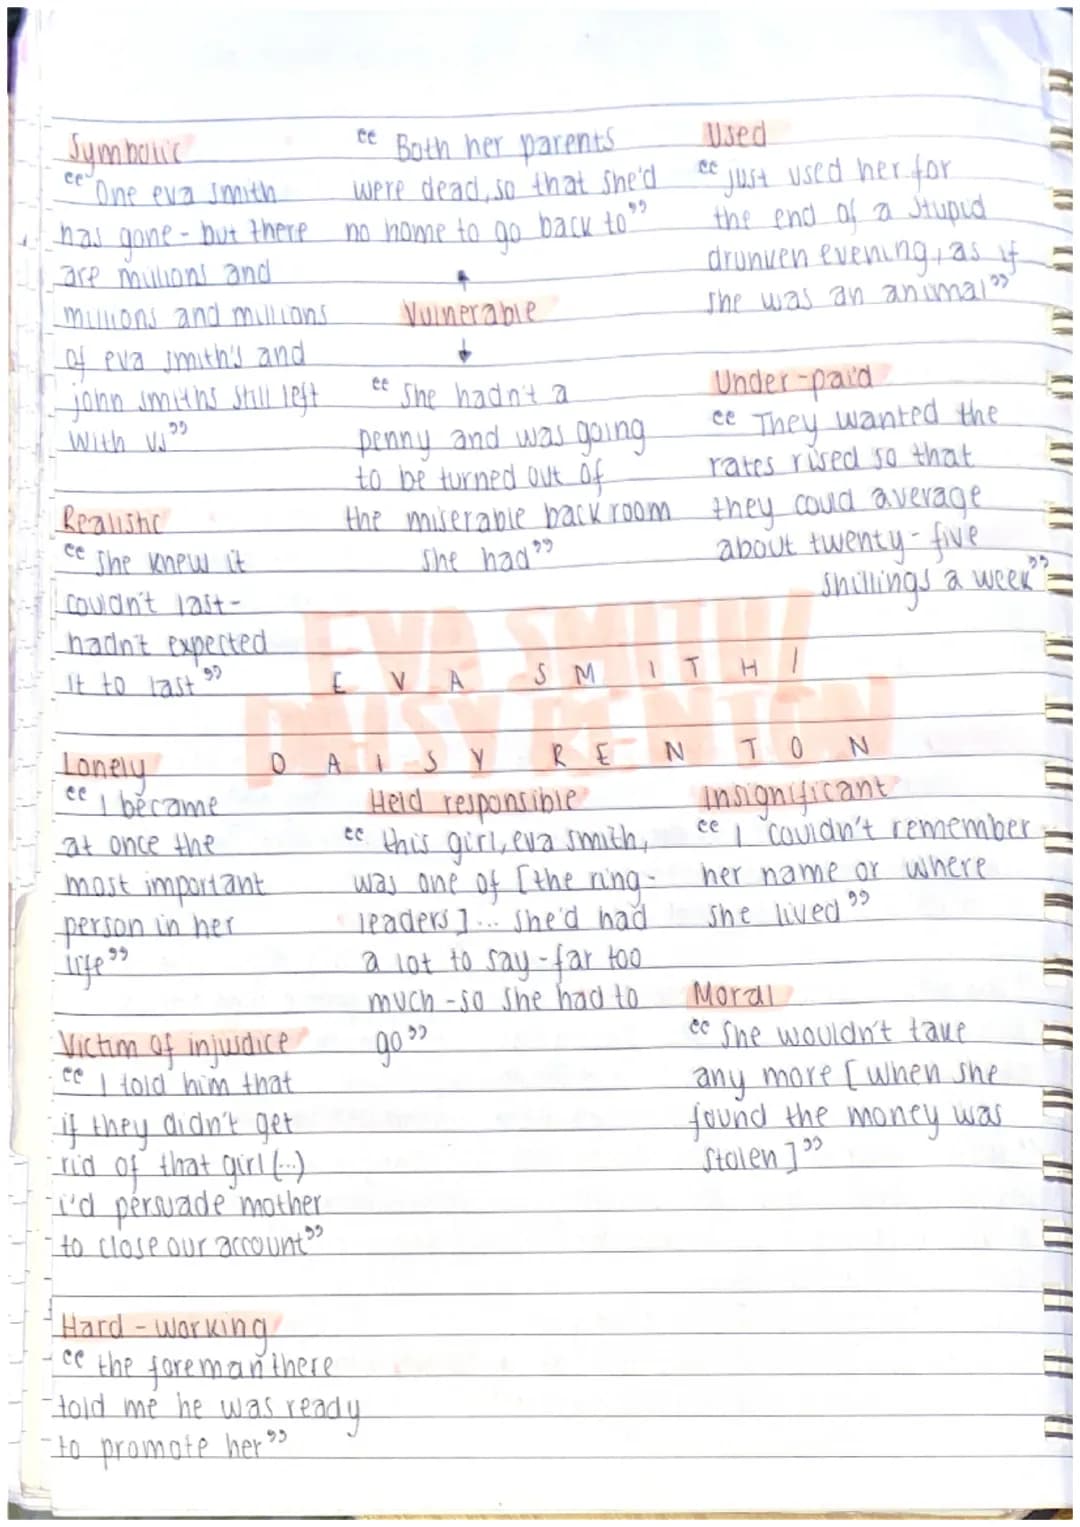 Symbolic
"One eva smith
has gone - but there
are millions and
millions and millions
of eva smith's and
john smiths still left
with us"
Realistic
"She knew it
couldn't last -
hadn't expected
it to last"
"Both her parents
were dead, so that she'd
no home to go back to"
Vulnerable
"She hadn't a
penny and was going
to be turned out of
the miserable back room
she had"
Used
"just used her for
the end of a stupid
drunken evening, as if
she was an animal"
Under-paid
"They wanted the
rates rised so that
they could average
about twenty-five
shillings a week"
EVA SMITH/
DAISY RENTON
Lonely
"I became
at once the
most important
person in her
life"
Victim of injusdice
"I told him that
if they didn't get
rid of that girl (...)
i'd persuade mother
to close our account"
Hard-working
"the foreman there
told me he was ready
to promote her"
Held responsible
"this girl, eva smith,
was one of [the ring-
leaders]... she'd had
a lot to say - far too
much - so she had to
go"
Insignificant
"I couldn't remember
her name or where
she lived"
Moral
"She wouldn't take
any more [when she
found the money was
stolen]"